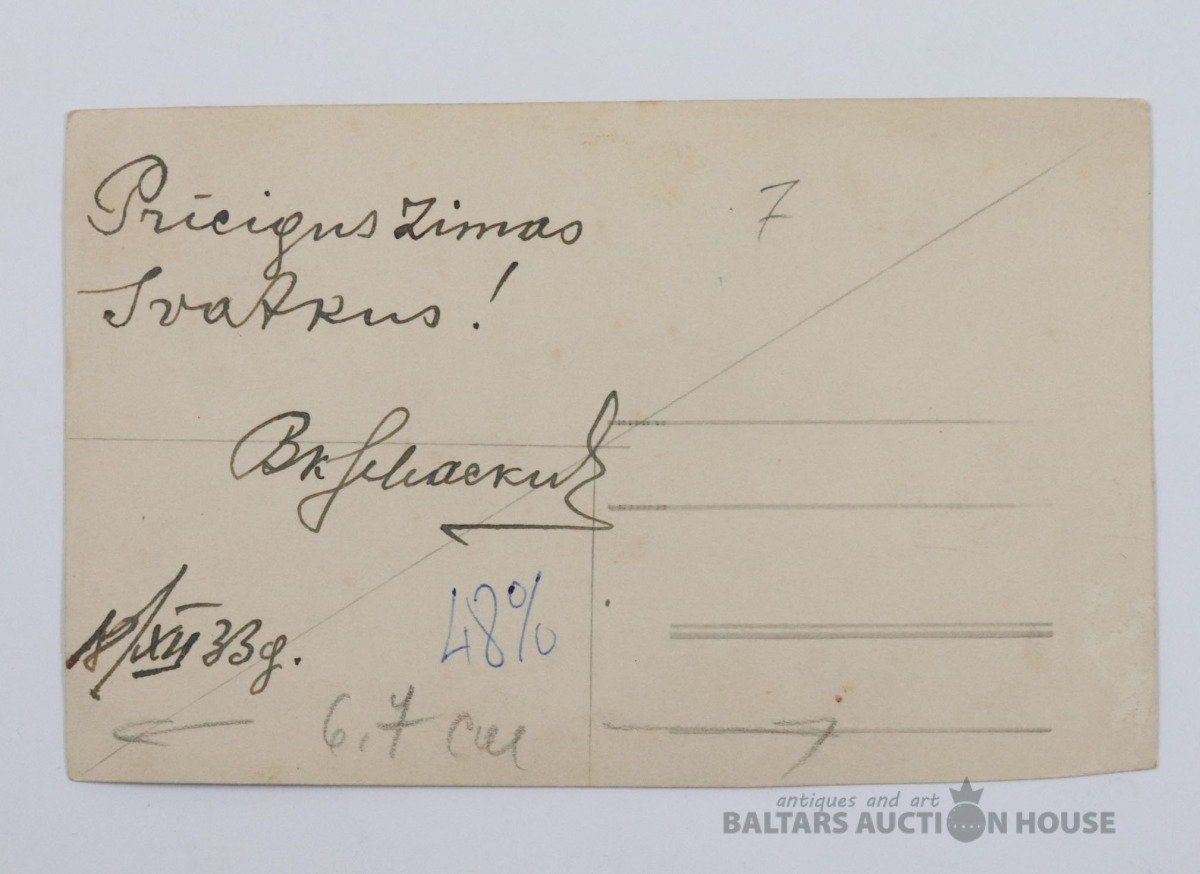 Priecigus Zimas
Svatkus!
7
18/XII 33g.
48%
6,7 см
antiques and art
BALTARS AUCTION HOUSE